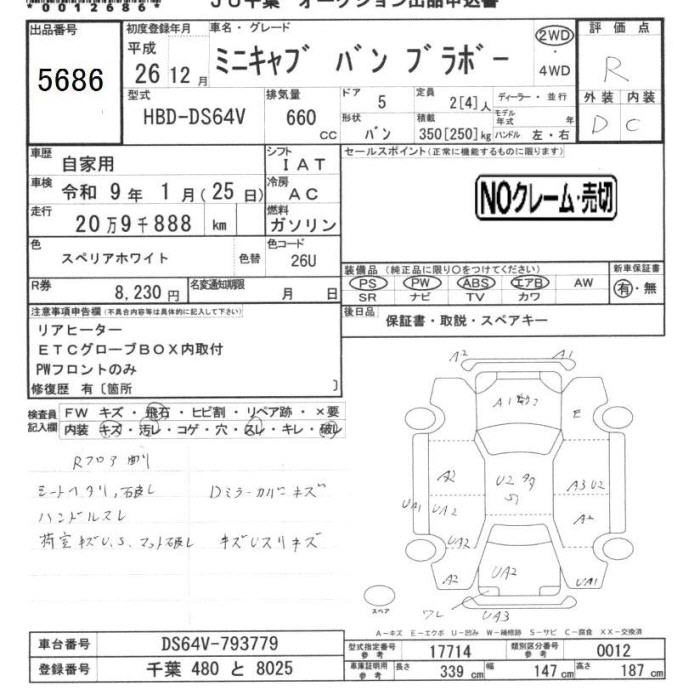 *0012686*
JU千葉 オークション出品申込書
出品番号
5686
初度登録年月
平成
26 12 月
車名・グレード
ミニキャブ バン ブラボー
2WD
・
4WD
評価点
R
外装 内装
D C
型式
HBD-DS64V
排気量
660
cc
ドア
5
定員
2[4]人
ディーラー・並行
モデル年式 年
形状
バン
積載
350[250]kg
ハンドル 左・右
車歴
自家用
シフト
IAT
車検
令和 9 年 1 月(25 日)
冷房
AC
走行
20万9千888 km
燃料
ガソリン
色
スペリアホワイト
色替
色コード
26U
R券
8,230 円
名変通知期限
月 日
セールスポイント(正常に機能するものに限ります)
NOクレーム・売切
装備品(純正品に限り○をつけてください)
PS PW ABS エアB AW
SR ナビ TV カワ
新車保証書
有・無
後日品
保証書・取説・スペアキー
注意事項申告欄(不具合内容等は具体的に記入して下さい)
リアヒーター
ETCグローブBOX内取付
PWフロントのみ
修復歴 有〔箇所 〕
検査員
記入欄
FW キズ・飛石・ヒビ割・リペア跡・×要
内装 キズ・汚レ・コゲ・穴・スレ・キレ・破レ
Rフロア曲り
シートヘタリ,破レ Dミラーカバーキズ
ハンドルスレ
荷室キズU.S.マット破レ キズUスリキズ
A2 A1
A1
E
A2 U2 A3 U2
S1
UA1 UA2 A2
UA2
A2 UA2 UA1
ワレ UA3
スペア
A-キズ E-エクボ U-凹み W-補修跡 S-サビ C-腐食 XX-交換済
車台番号
DS64V-793779
型式指定番号
参考
17714
類別区分番号
参考
0012
登録番号
千葉 480 と 8025
車庫証明用
参考
長さ 339 cm 幅 147 cm 高さ 187 cm